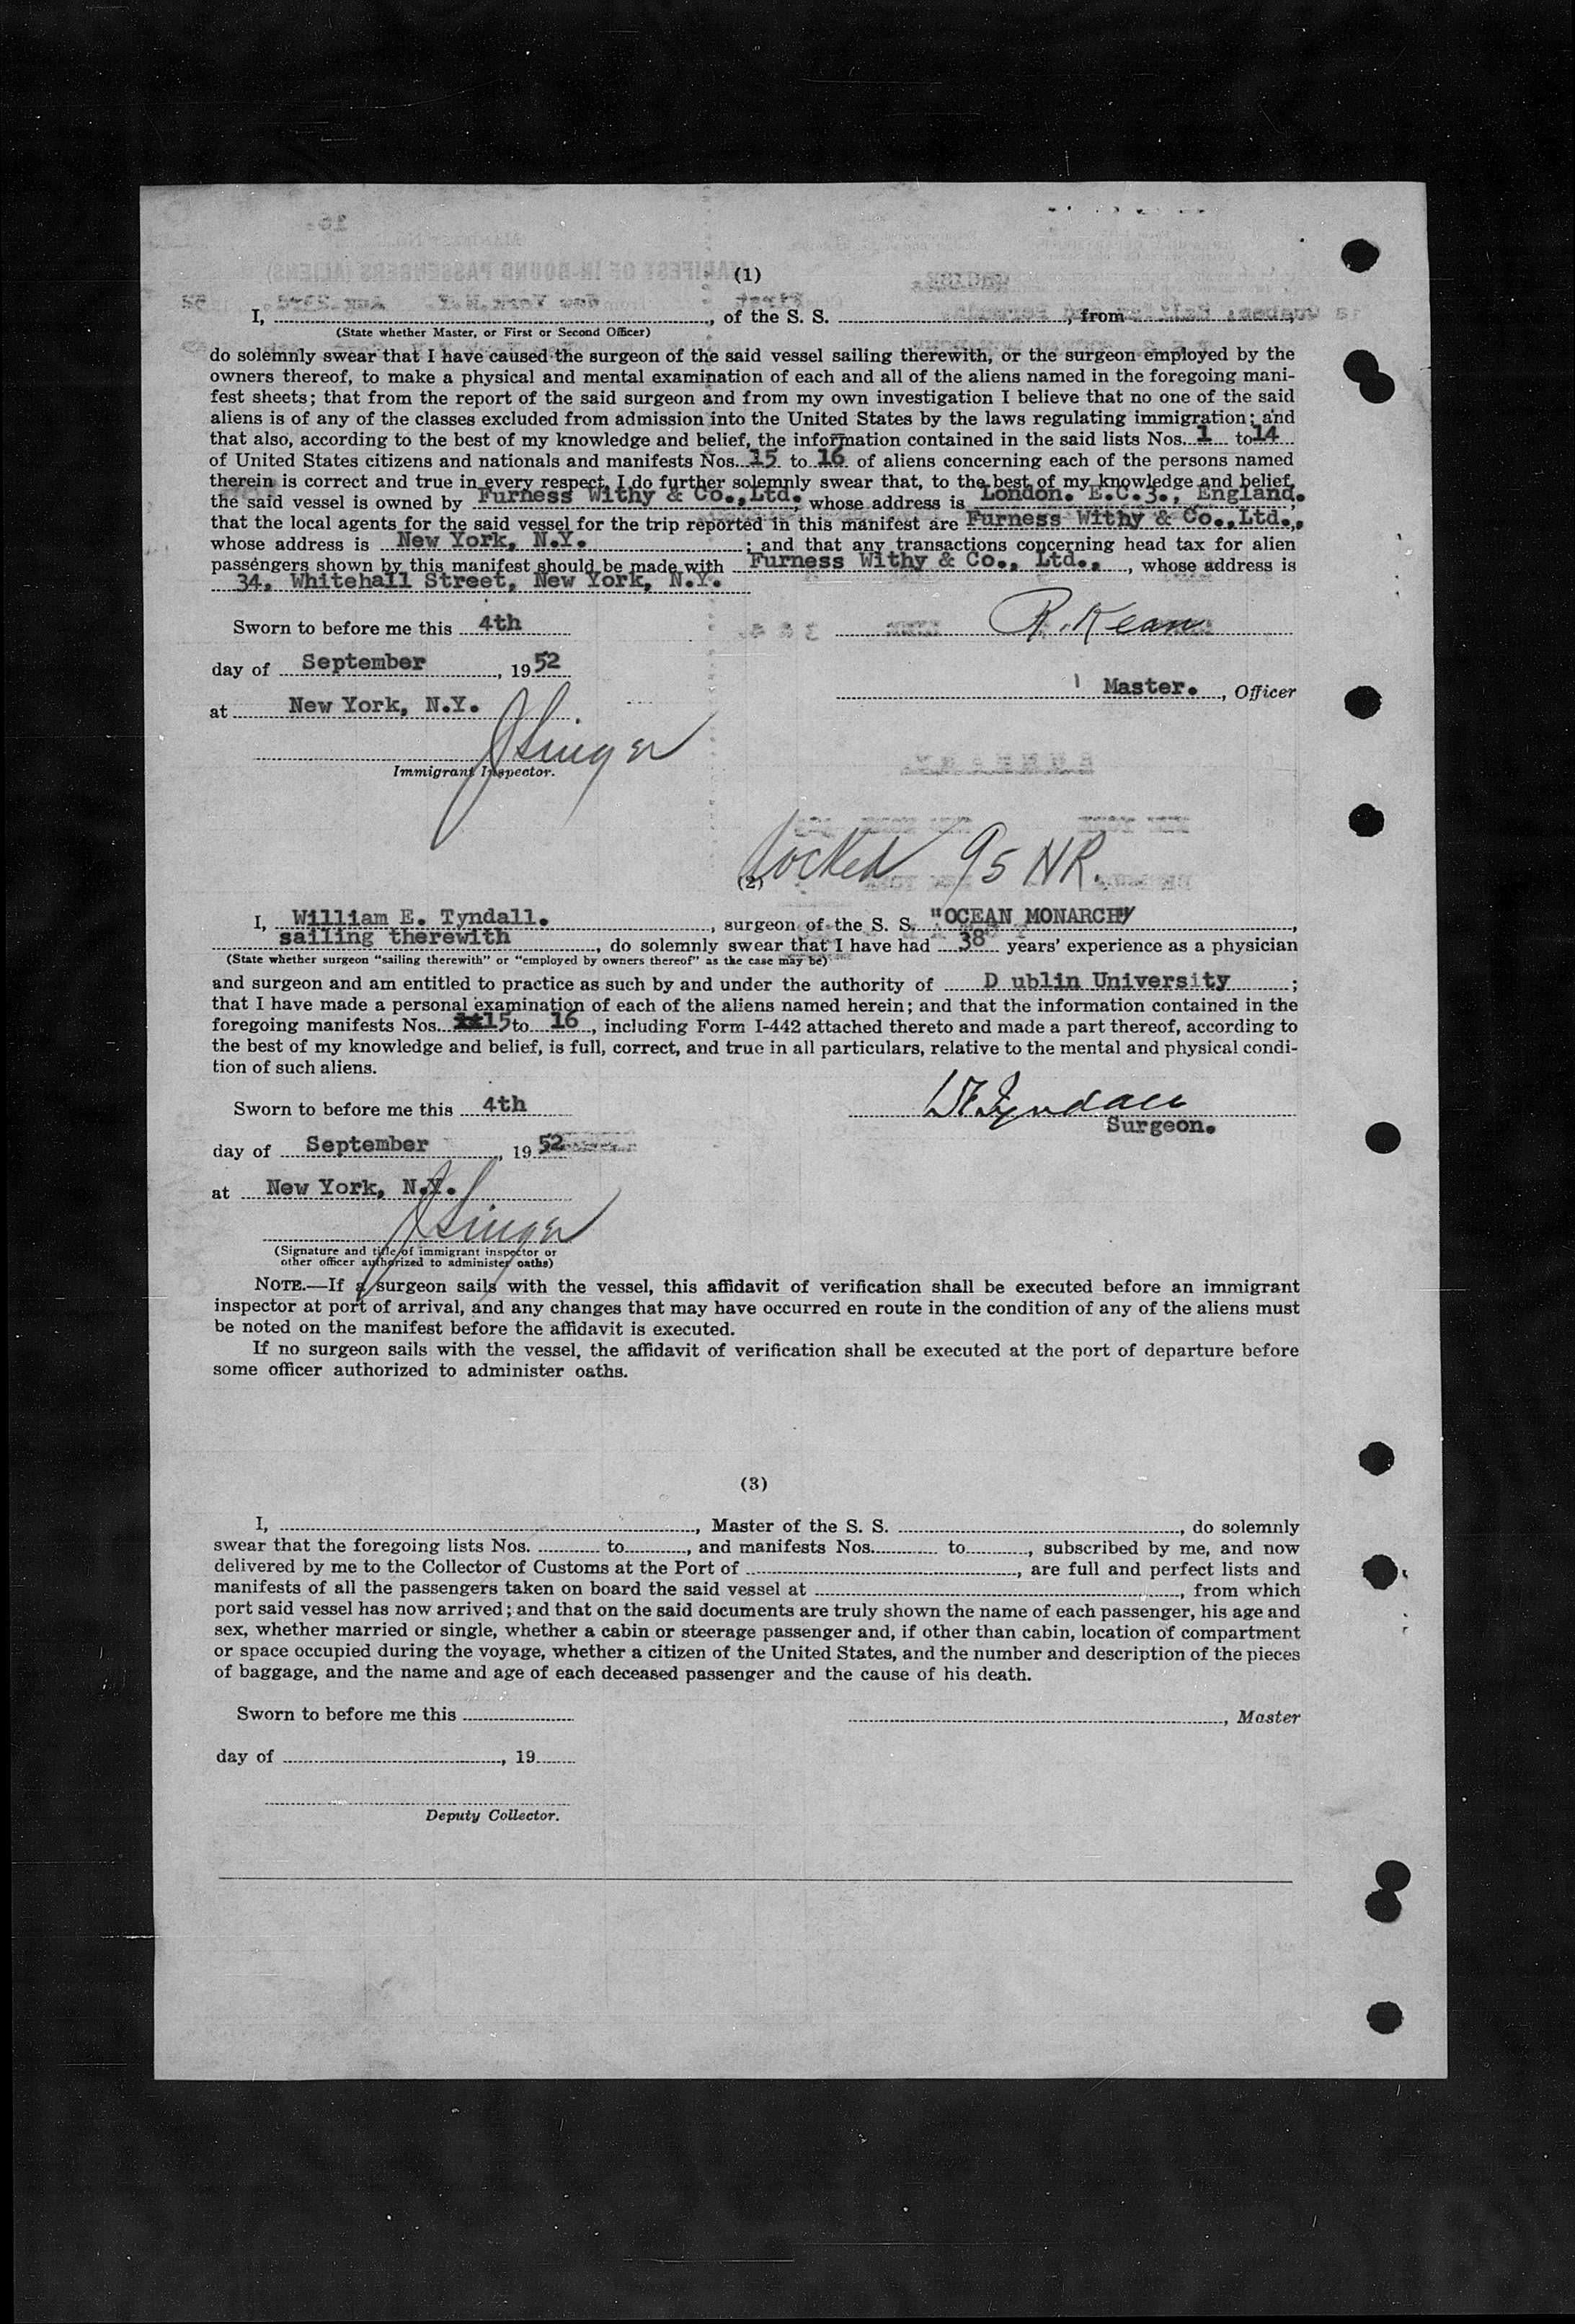 (1)
I, ........, of the S. S. ........, from ........,
(State whether Master, or First or Second Officer)
do solemnly swear that I have caused the surgeon of the said vessel sailing therewith, or the surgeon employed by the
owners thereof, to make a physical and mental examination of each and all of the aliens named in the foregoing mani-
fest sheets; that from the report of the said surgeon and from my own investigation I believe that no one of the said
aliens is of any of the classes excluded from admission into the United States by the laws regulating immigration; and
that also, according to the best of my knowledge and belief, the information contained in the said lists Nos. 1 to 14
of United States citizens and nationals and manifests Nos. 15 to 16 of aliens concerning each of the persons named
therein is correct and true in every respect. I do further solemnly swear that, to the best of my knowledge and belief,
the said vessel is owned by Furness Withy & Co., Ltd. whose address is London. E.C.3., England.
that the local agents for the said vessel for the trip reported in this manifest are Furness Withy & Co., Ltd.,
whose address is New York, N.Y. ; and that any transactions concerning head tax for alien
passengers shown by this manifest should be made with Furness Withy & Co., Ltd., , whose address is
34, Whitehall Street, New York, N.Y.
Sworn to before me this 4th
R. Kean
day of September, 1952
Master. , Officer
at New York, N.Y.
J Singer
Immigrant Inspector.
Docked 95 NR.
(2)
I, William E. Tyndall. , surgeon of the S. S. "OCEAN MONARCH"
sailing therewith , do solemnly swear that I have had 38 years' experience as a physician
(State whether surgeon "sailing therewith" or "employed by owners thereof" as the case may be)
and surgeon and am entitled to practice as such by and under the authority of D ublin University ;
that I have made a personal examination of each of the aliens named herein; and that the information contained in the
foregoing manifests Nos. 15 to 16, including Form I-442 attached thereto and made a part thereof, according to
the best of my knowledge and belief, is full, correct, and true in all particulars, relative to the mental and physical condi-
tion of such aliens.
Sworn to before me this 4th
W E Tyndall
Surgeon.
day of September, 1952
at New York, N.Y.
J Singer
(Signature and title of immigrant inspector or
other officer authorized to administer oaths)
NOTE.—If a surgeon sails with the vessel, this affidavit of verification shall be executed before an immigrant
inspector at port of arrival, and any changes that may have occurred en route in the condition of any of the aliens must
be noted on the manifest before the affidavit is executed.
If no surgeon sails with the vessel, the affidavit of verification shall be executed at the port of departure before
some officer authorized to administer oaths.
(3)
I, ........, Master of the S. S. ........, do solemnly
swear that the foregoing lists Nos. ........ to ........, and manifests Nos. ........ to ........, subscribed by me, and now
delivered by me to the Collector of Customs at the Port of ........, are full and perfect lists and
manifests of all the passengers taken on board the said vessel at ........, from which
port said vessel has now arrived; and that on the said documents are truly shown the name of each passenger, his age and
sex, whether married or single, whether a cabin or steerage passenger and, if other than cabin, location of compartment
or space occupied during the voyage, whether a citizen of the United States, and the number and description of the pieces
of baggage, and the name and age of each deceased passenger and the cause of his death.
Sworn to before me this ........
........, Master
day of ........, 19....
Deputy Collector.